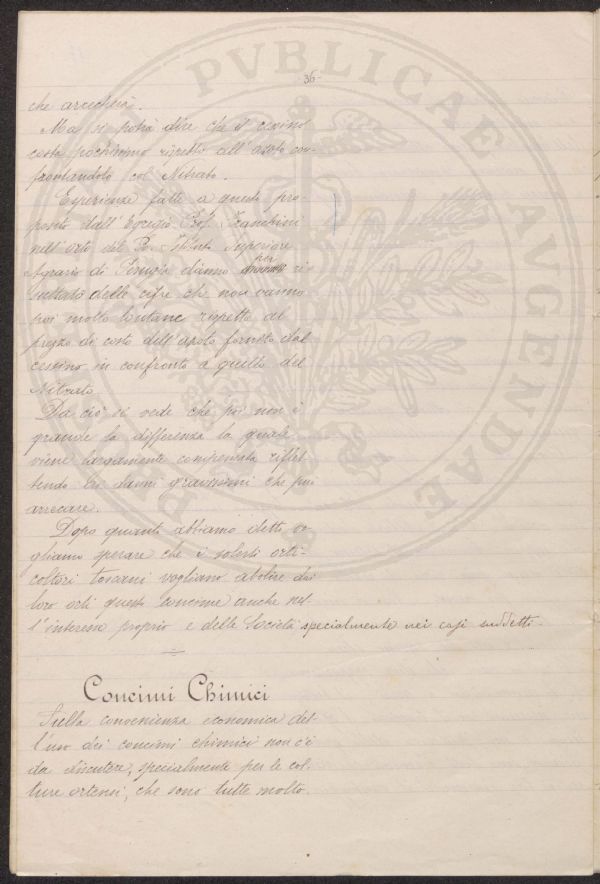 36
che arrecherà.
Ma si potrà dire che il cessino
costa pochissimo rispetto all'azoto con-
frontandolo col Nitrato.
Esperienze fatte a questo pro-
posito dall'Egregio Prof. Zanelini
nell'orto del R. Istituto Superiore
Agrario di Perugia danno per ri-
sultato delle cifre che non vanno
poi molto lontane rispetto al
prezzo di costo dell'azoto fornito dal
cessino in confronto a quello del
Nitrato.
Da ciò si vede che poi non è
grande la differenza la quale
viene largamente compensata riflet-
tendo ai danni gravissimi che può
arrecare.
Dopo quanto abbiamo detto vo-
gliamo sperare che i solerti orti-
coltori toscani vogliano abolire dai
loro orti questo concime anche nel-
l'interesse proprio e della Società specialmente nei casi suddetti.
Concimi Chimici
Sulla convenienza economica del-
l'uso dei concimi chimici non c'è
da discutere, specialmente per le col-
ture ortensi, che sono tutte molto
PVBLICAE AVGENDAE